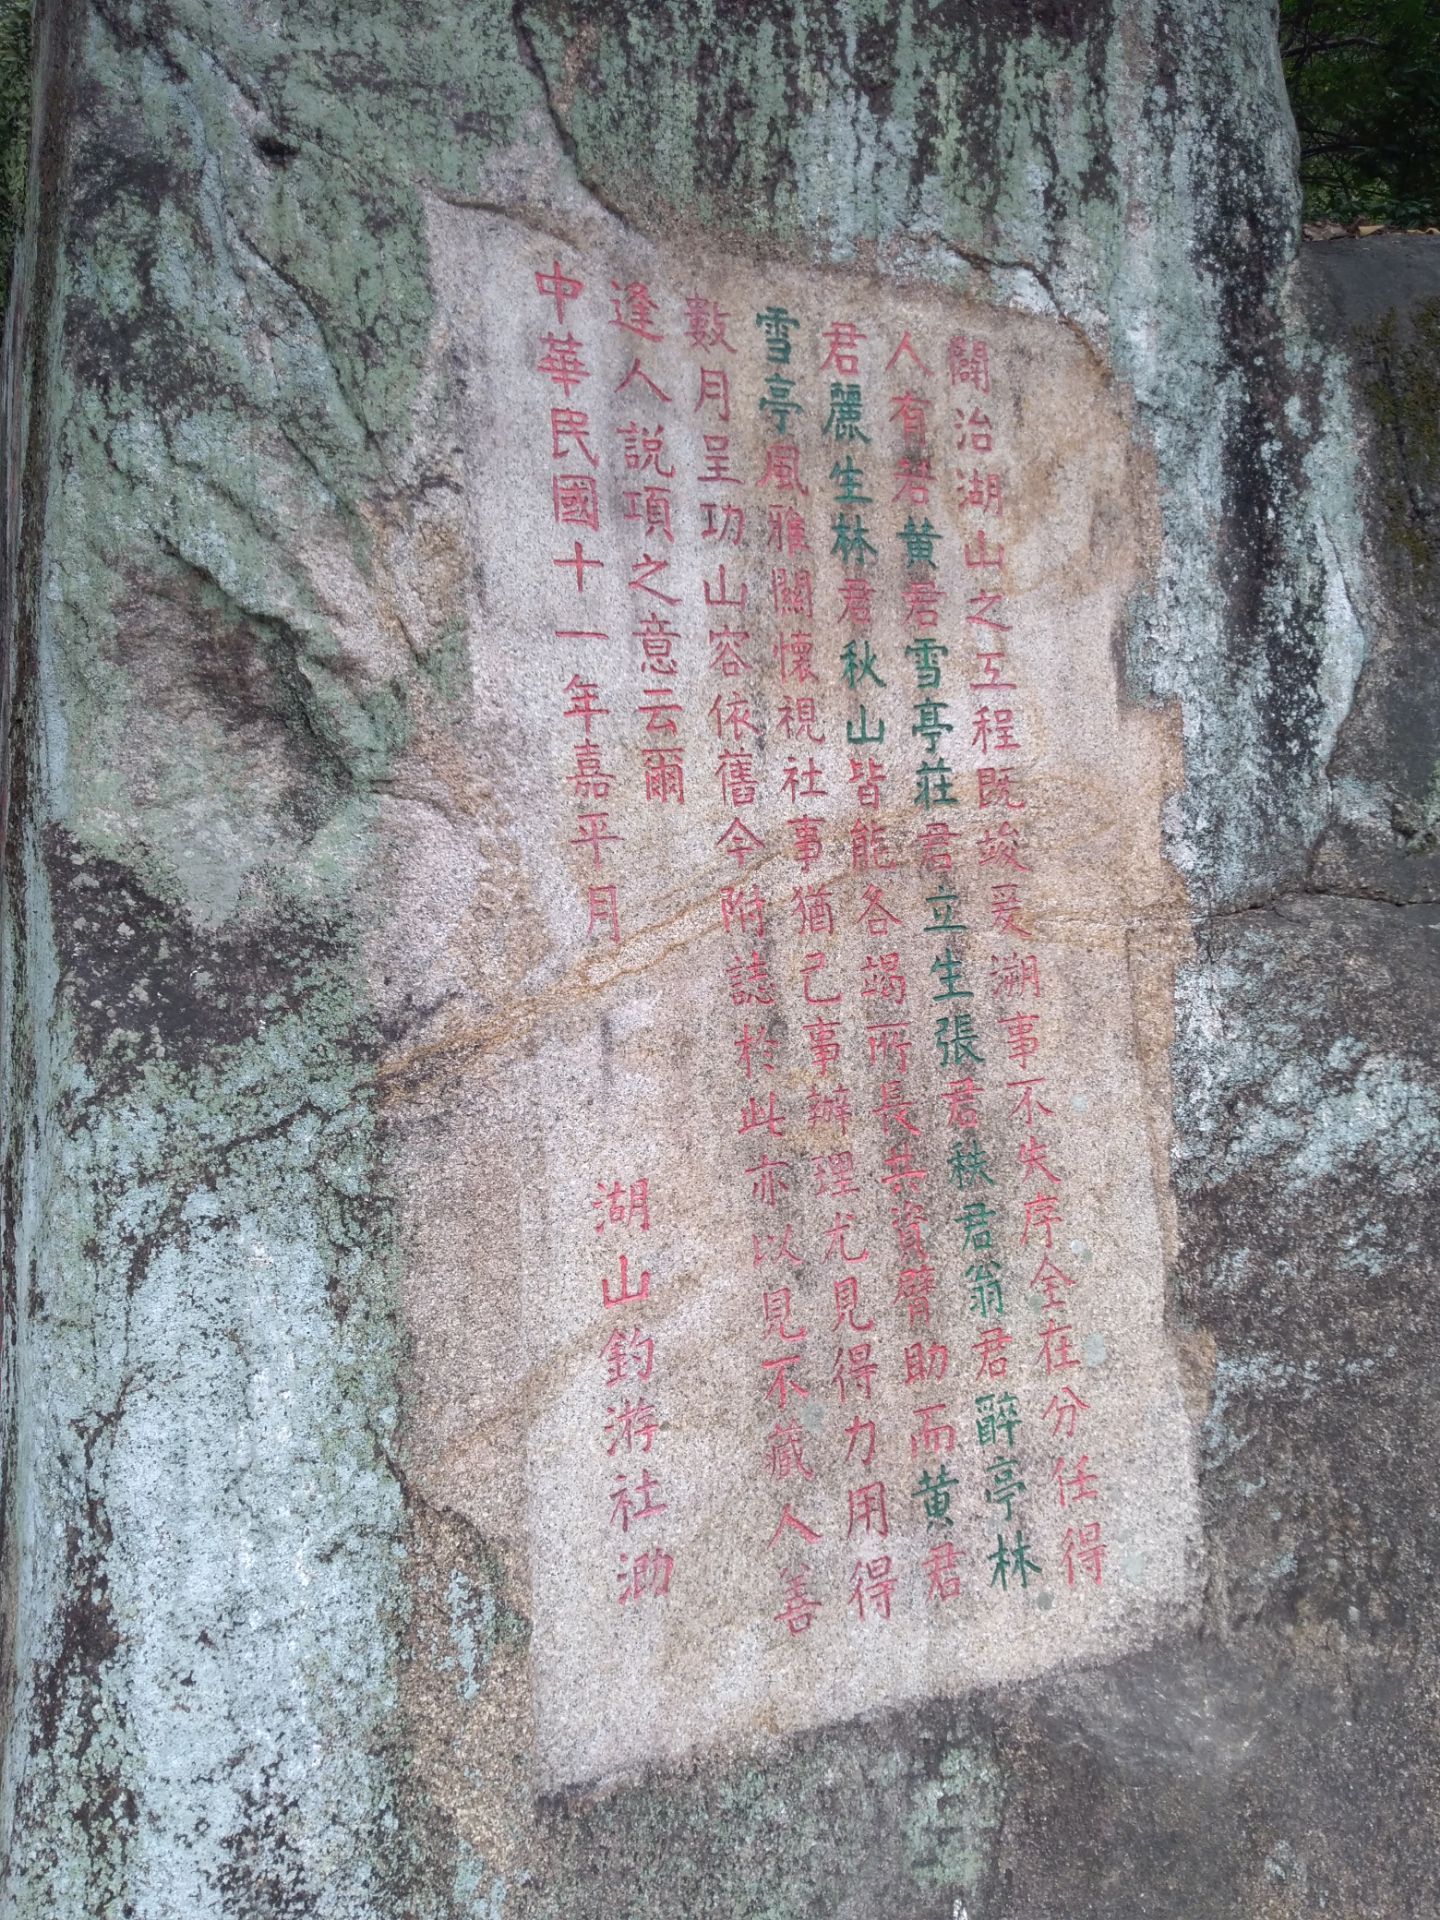 闢治湖山之工程既竣爰溯事不失序全在分任得
人有若黄君雪亭莊君立生張君秩君翁君醉亭林
君麗生林君秋山皆能各竭所長共資臂助而黄君
雪亭風雅關懷視社事猶己事辦理尤見得力用得
數月呈功山容依舊今附誌於此亦以見不藏人善
逢人說項之意云爾
中華民國十一年嘉平月 湖山釣游社泐